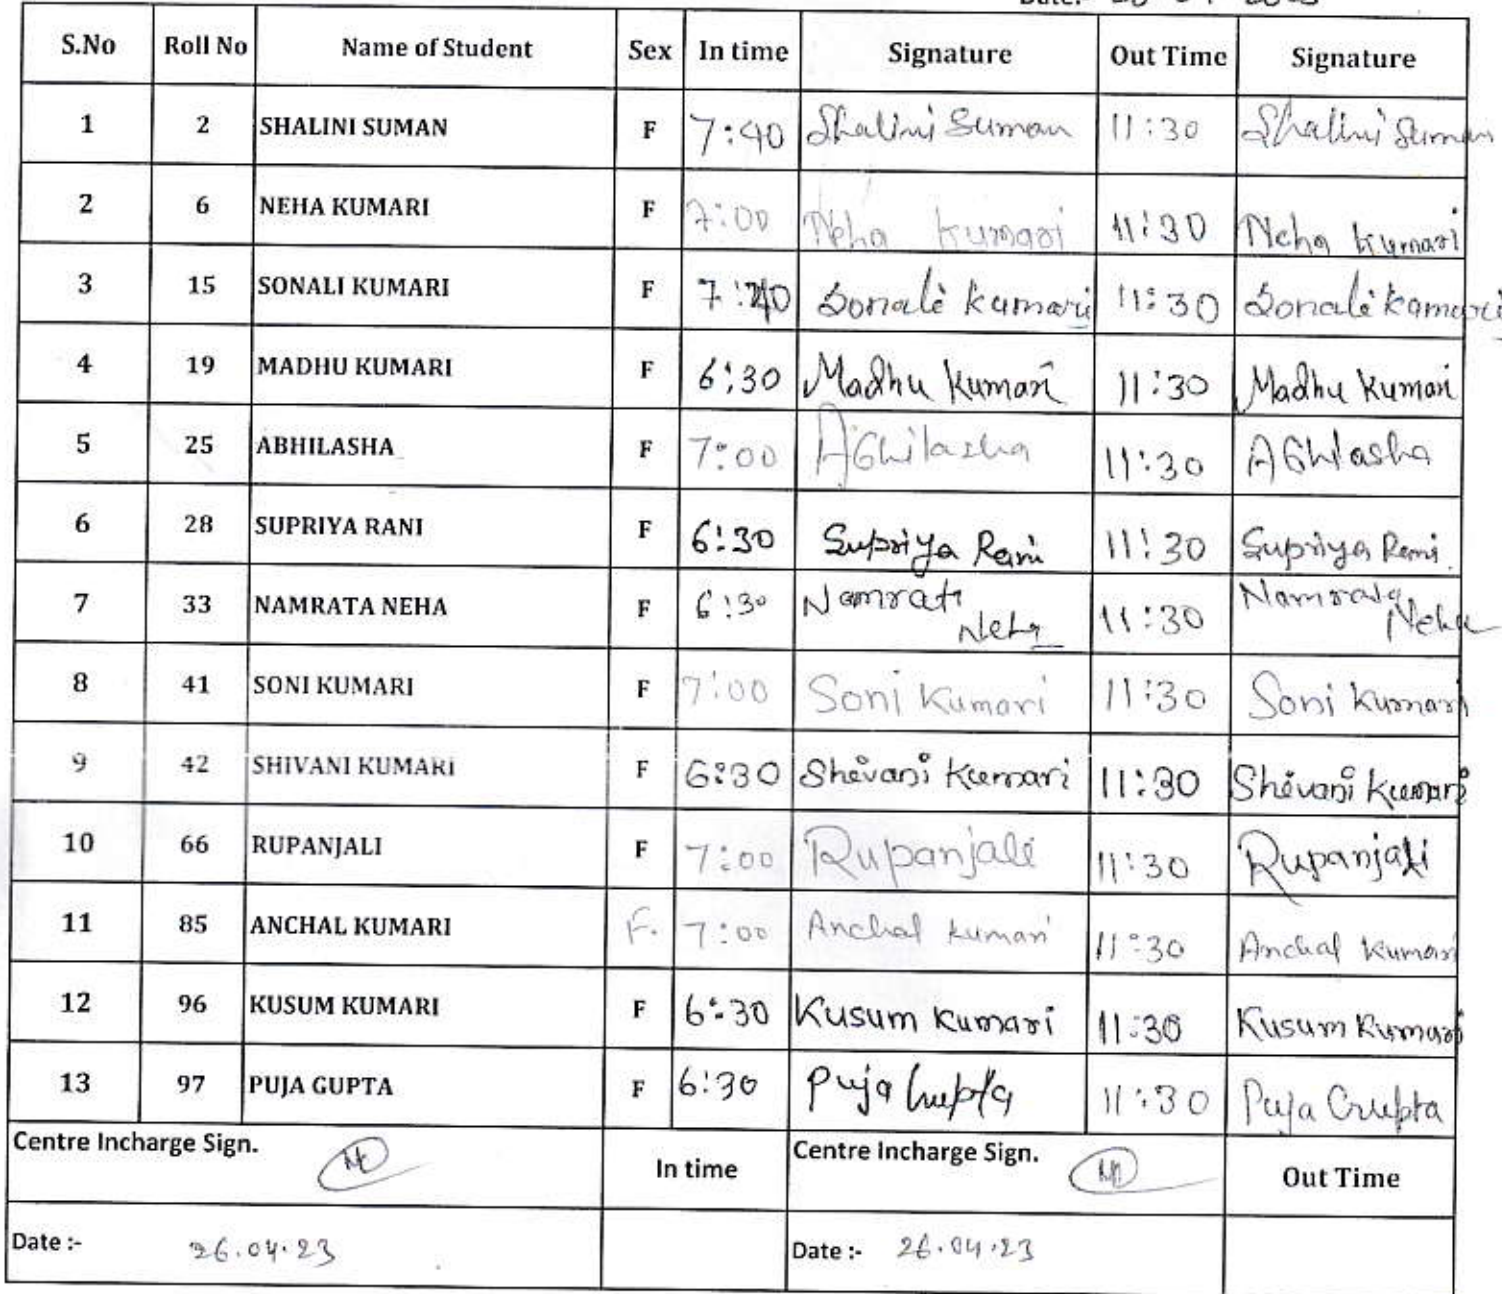 S.No Roll No Name of Student Sex In time Signature Out Time Signature
1 2 SHALINI SUMAN F 7:40 Shalini Suman 11:30 Shalini Suman
2 6 NEHA KUMARI F 7:00 Neha Kumari 11:30 Neha Kumari
3 15 SONALI KUMARI F 7:40 Sonali Kumari 11:30 Sonali Kumari
4 19 MADHU KUMARI F 6:30 Madhu Kumari 11:30 Madhu Kumari
5 25 ABHILASHA F 7:00 Abhilasha 11:30 Abhlasha
6 28 SUPRIYA RANI F 6:30 Supriya Rani 11:30 Supriya Rani
7 33 NAMRATA NEHA F 6:30 Namrata Neha 11:30 Namrata Neha
8 41 SONI KUMARI F 7:00 Soni Kumari 11:30 Soni Kumari
9 42 SHIVANI KUMARI F 6:30 Shivani Kumari 11:30 Shivani Kumari
10 66 RUPANJALI F 7:00 Rupanjali 11:30 Rupanjali
11 85 ANCHAL KUMARI F. 7:00 Anchal Kumari 11:30 Anchal Kumari
12 96 KUSUM KUMARI F 6:30 Kusum Kumari 11:30 Kusum Kumari
13 97 PUJA GUPTA F 6:30 Puja Gupta 11:30 Puja Gupta
Centre Incharge Sign. In time Centre Incharge Sign. Out Time
Date :- 26.04.23 Date :- 26.04.23